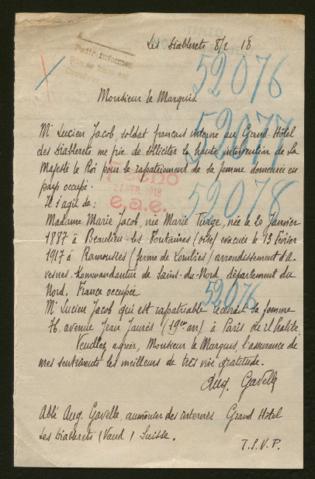 Les Diablerets 8/2 18
52076
Monsieur le Marquis
52077
Mr Lucien Jacob soldat français interné au Grand Hôtel
des Diablerets me prie de solliciter la haute intervention de sa
Majesté le Roi pour le rapatriement de sa femme demeurée en
pays occupé.
52078
e.a.e.
Il s'agit de:
Madame Marie Jacob, née Marie Turge, née le 20 Janvier
1887 à Beaulieu-les-Fontaines (Oise) évacuée le 13 Février
1917 à Ramousies (ferme de ) arrondissement d'A-
vesnes. Kommandantur de Sains-du-Nord, département du
Nord. France occupée.
52076
Mr Lucien Jacob qui est rapatriable recevrait sa femme
76 avenue Jean Jaurès (19e arr) à Paris où il habite.
Veuillez agréer, Monsieur le Marquis, l'assurance de
mes sentiments les meilleurs de très vive gratitude.
Aug. Gavelle
Abbé Aug. Gavelle, aumônier des internés Grand Hôtel
Les Diablerets (Vaud) Suisse.
T.S.V.P.